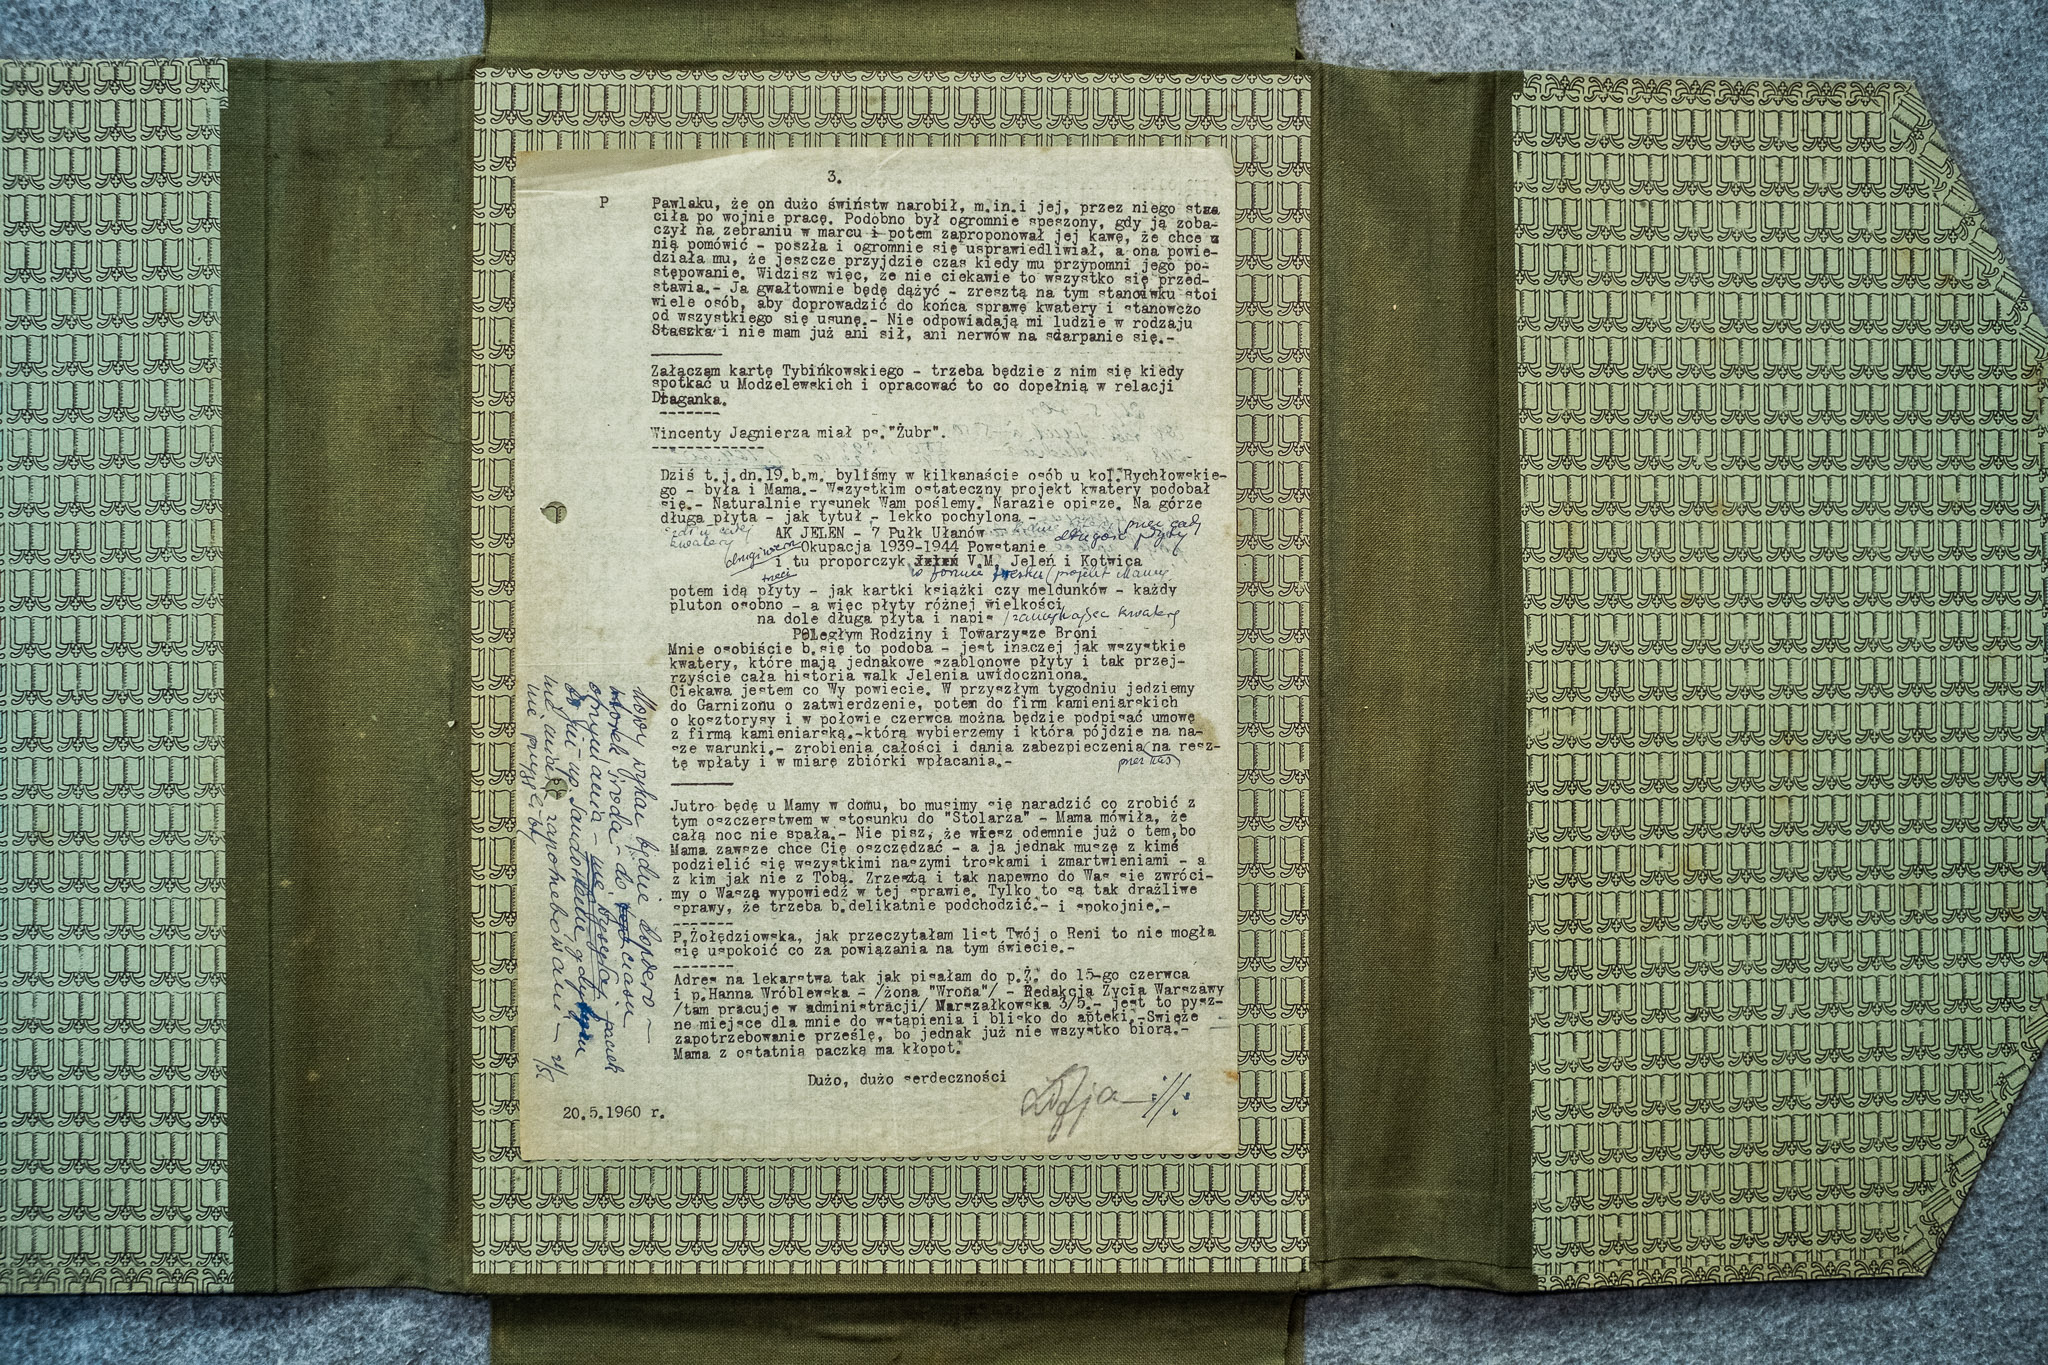 3.
P Pawlaku, że on dużo świństw narobił, m.in.i jej, przez niego stra
ciła po wojnie pracę. Podobno był ogromnie speszony, gdy ją zoba-
czył na zebraniu w marcu i potem zaproponował jej kawę, że chce z
nią pomówić - poszła i ogromnie się usprawiedliwiał, a ona powie-
działa mu, że jeszcze przyjdzie czas kiedy mu przypomni jego po-
stępowanie. Widzisz więc, że nie ciekawie to wszystko się przed-
stawia.- Ja gwałtownie będę dążyć - zresztą na tym stanowku stoi
wiele osób, aby doprowadzić do końca sprawę kwatery i stanowczo
od wszystkiego się usunę.- Nie odpowiadają mi ludzie w rodzaju
Staszka i nie mam już ani sił, ani nerwów na sdarpanie się.-
Załączam kartę Tybińkowskiego - trzeba będzie z nim się kiedy
spotkać u Modzelewskich i opracować to co dopełnią w relacji
Draganka.
Wincenty Jagnierza miał ps."Żubr".
Dziś t.j.dn.19.b.m. byliśmy w kilkanaście osób u kol.Rychłowskie-
go - była i Mama.- Wszystkim ostateczny projekt kwatery podobał
się.- Naturalnie rysunek Wam poślemy. Narazie opisze. Na górze
długa płyta - jak tytuł - lekko pochylona -
kwatery AK JELEŃ - 7 Pułk Ułanów przez całą
długość płyty
drugi wiersz Okupacja 1939-1944 Powstanie
trzeci i tu proporczyk V.M. Jeleń i Kotwica
w formie fresku (projekt Mamy
potem idą płyty - jak kartki książki czy meldunków - każdy
pluton osobno - a więc płyty różnej wielkości
na dole długa płyta i napis /zamykająca kwaterę
Poległym Rodziny i Towarzysze Broni
Mnie osobiście b.się to podoba - jest inaczej jak wszystkie
kwatery, które mają jednakowe szablonowe płyty i tak przej-
rzyście cała historia walk Jelenia uwidoczniona.
Ciekawa jestem co Wy powiecie. W przyszłym tygodniu jedziemy
do Garnizonu o zatwierdzenie, potem do firm kamieniarskich
o kosztorysy i w połowie czerwca można będzie podpisać umowę
z firmą kamieniarską.-którą wybierzemy i która pójdzie na na-
sze warunki.- zrobienia całości i dania zabezpieczenia na resz-
tę wpłaty i w miarę zbiórki wpłacania.- przez nas
Jutro będę u Mamy w domu, bo musimy się naradzić co zrobić z
tym oszczerstwem w stosunku do "Stolarza" - Mama mówiła, że
całą noc nie spała.- Nie pisz, że wiesz odemnie już o tem,bo
Mama zawsze chce Cię oszczędzać - a ja jednak muszę z kimś
podzielić się wszystkimi naszymi troskami i zmartwieniami - a
z kim jak nie z Tobą. Zresztą i tak napewno do Was sie zwróci-
my o Waszą wypowiedź w tej sprawie. Tylko to są tak drażliwe
sprawy, że trzeba b.delikatnie podchodzić.- i spokojnie.-
P.Żołędziowska, jak przeczytałam list Twój o Reni to nie mogła
się uspokoić co za powiązania na tym świecie.-
Adres na lekarstwa tak jak pisałam do p.Ż. do 15-go czerwca
i p.Hanna Wróblewska - /żona "Wrona"/ - Redakcja Życia Warszawy
/tam pracuje w administracji/ Marszałkowska 3/5.- jest to pysz-
ne miejsce dla mnie do wstąpienia i blisko do apteki.-Swięże
zapotrzebowanie prześlę, bo jednak już nie wszystko biorą.-
Mama z ostatnią paczką ma kłopot.
Dużo, dużo serdeczności
Zofja
20.5.1960 r.
Nowy wykaz będzie dopiero -
wtorek środa - do czasu
otrzymania - nie wysyłaj paczek
nie przyszły